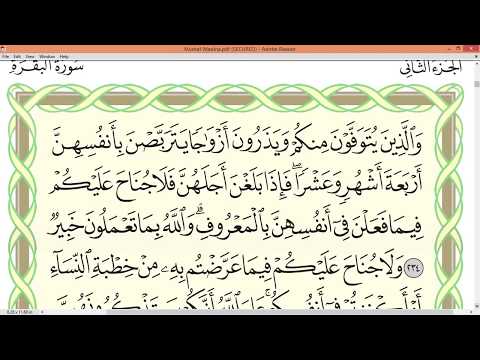 Mushaf Madina.pdf (SECURED) - Adobe Reader
File Edit View Window Help
الجزء الثاني
سورة البقرة
وَالَّذِينَ يُتَوَفَّوْنَ مِنكُمْ وَيَذَرُونَ أَزْوَاجًا يَتَرَبَّصْنَ بِأَنفُسِهِنَّ
أَرْبَعَةَ أَشْهُرٍ وَعَشْرًا ۖ فَإِذَا بَلَغْنَ أَجَلَهُنَّ فَلَا جُنَاحَ عَلَيْكُمْ
فِيمَا فَعَلْنَ فِي أَنفُسِهِنَّ بِالْمَعْرُوفِ ۗ وَاللَّهُ بِمَا تَعْمَلُونَ خَبِيرٌ
٢٣٤ وَلَا جُنَاحَ عَلَيْكُمْ فِيمَا عَرَّضْتُم بِهِ مِنْ خِطْبَةِ النِّسَاءِ
أَوْ أَكْنَنتُمْ فِي أَنفُسِكُمْ ۚ عَلِمَ اللَّهُ أَنَّكُمْ سَتَذْكُرُونَهُنَّ